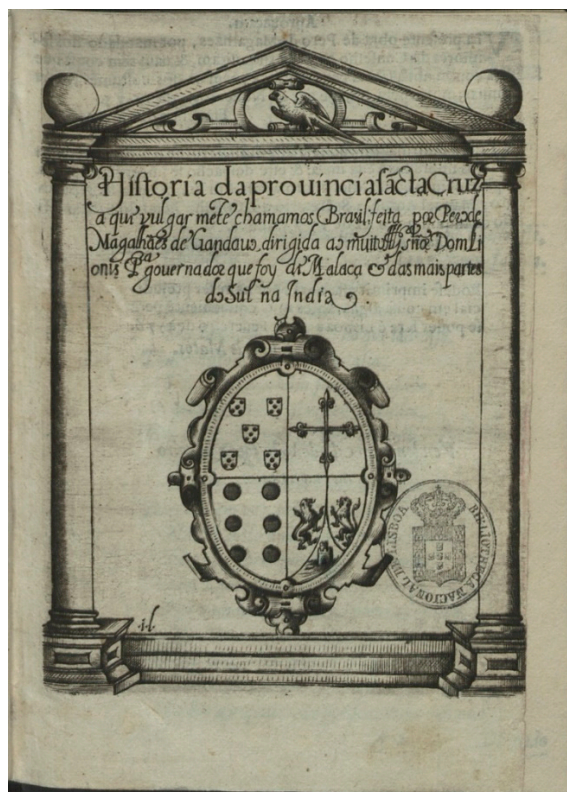 Historia da prouincia sãcta Cruz
a que vulgar mẽte chamamos Brasil feita por Pero de
Magalhães de Gandauo, dirigida ao muito Illsre snõr Dom Li
onis Pra gouernador que foy de Malaca e das mais partes
do Sul na India.
BIBLIOTHECA NACIONAL DE LISBOA